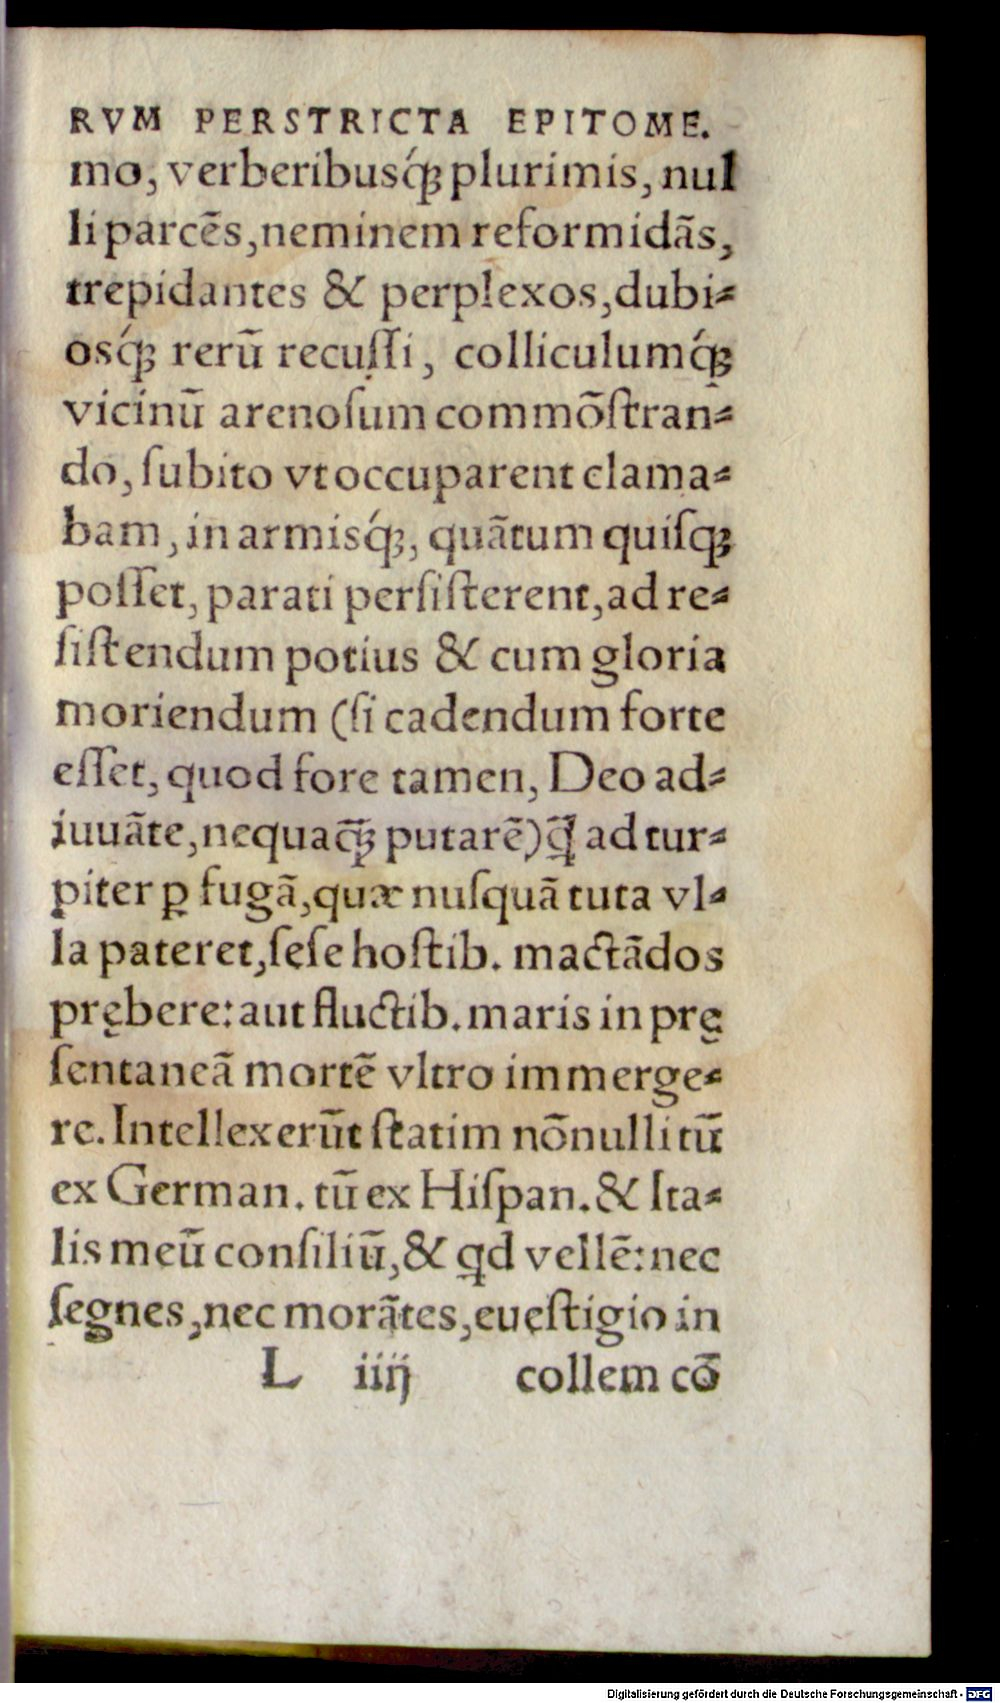 RVM PERSTRICTA EPITOME.
mo, verberibusq́; plurimis, nul
li parcẽs, neminem reformidãs,
trepidantes & perplexos, dubi⸗
osq́; rerũ recuſſi, colliculumq́;
vicinũ arenoſum commõſtran⸗
do, ſubito vt occuparent clama⸗
bam, in armisq́;, quãtum quiſq;
poſſet, parati perſiſterent, ad re⸗
ſiſtendum potius & cum gloria
moriendum (ſi cadendum forte
eſſet, quod fore tamen, Deo ad⸗
iuuãte, nequaꝗ̃ putarẽ) ꝗ̃ ad tur⸗
piter ꝑ fugã, quæ nuſquã tuta vl⸗
la pateret, ſeſe hoſtib. mactãdos
prębere: aut fluctib. maris in prę
ſentaneã mortẽ vltro immerge⸗
re. Intellexerũt ſtatim nõnulli tũ
ex German. tũ ex Hiſpan. & Ita⸗
lis meũ conſiliũ, & qd vellẽ: nec
ſegnes, nec morãtes, eueſtigio in
L iiij collem cõ
Digitalisierung gefördert durch die Deutsche Forschungsgemeinschaft - DFG